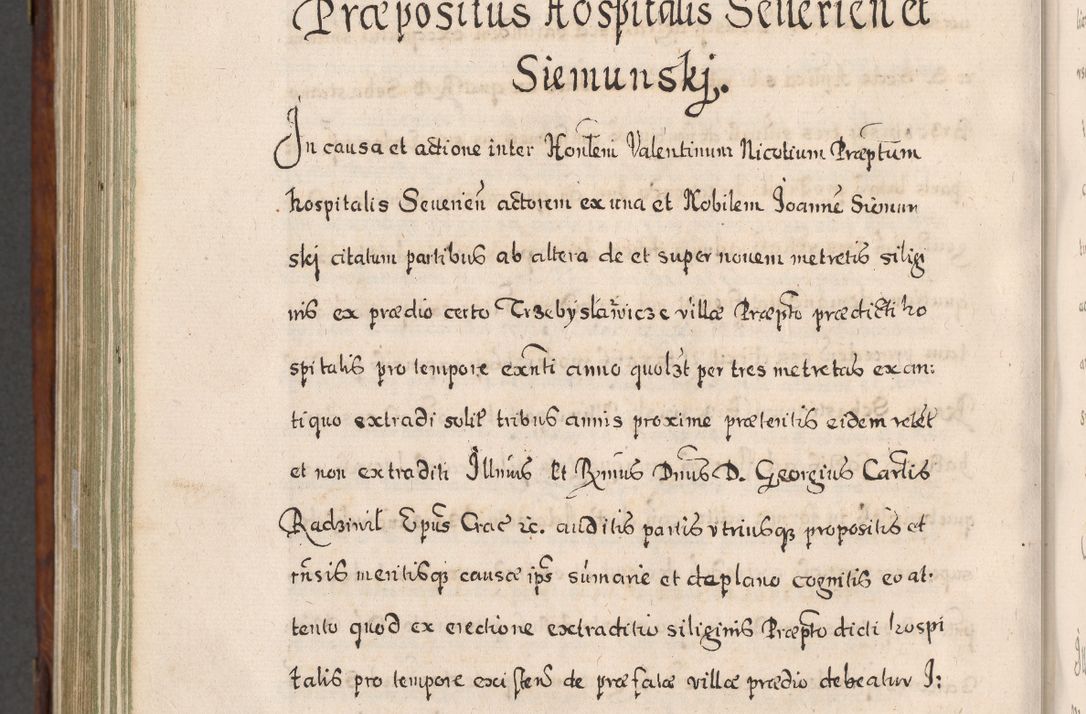 Præpositus Hospitalis Seuerien et
Siemunskj.
In causa et actione inter Honlem Valentinum Nicolium Præptum
hospitalis Seuerień actorem ex una et Nobilem Joanne Siemun
skj citatum partibus ab altera de et super nouem metretis silig
inis ex prædio certo Trzebyslawicze villæ Præpto prædicti ho
spitalis pro tempore exnti anno quolzt per tres metretas ex an:
tiquo extradi solit tribus annis proxime præteritis eidem retet
et non extraditi Illmus Et Rymus Dnus D. Georgius Cardlis
Radziwil Epus Crac rc. auditis partis vtriusqz propositis et
rnsis meritisqz causæ ips sumarie et de plano cognitis eo at.
tento quod ex erectione extraditio siliginis Præpto dicti hospi
talis pro tempore existens de præfatæ villæ prædio debeatur I: